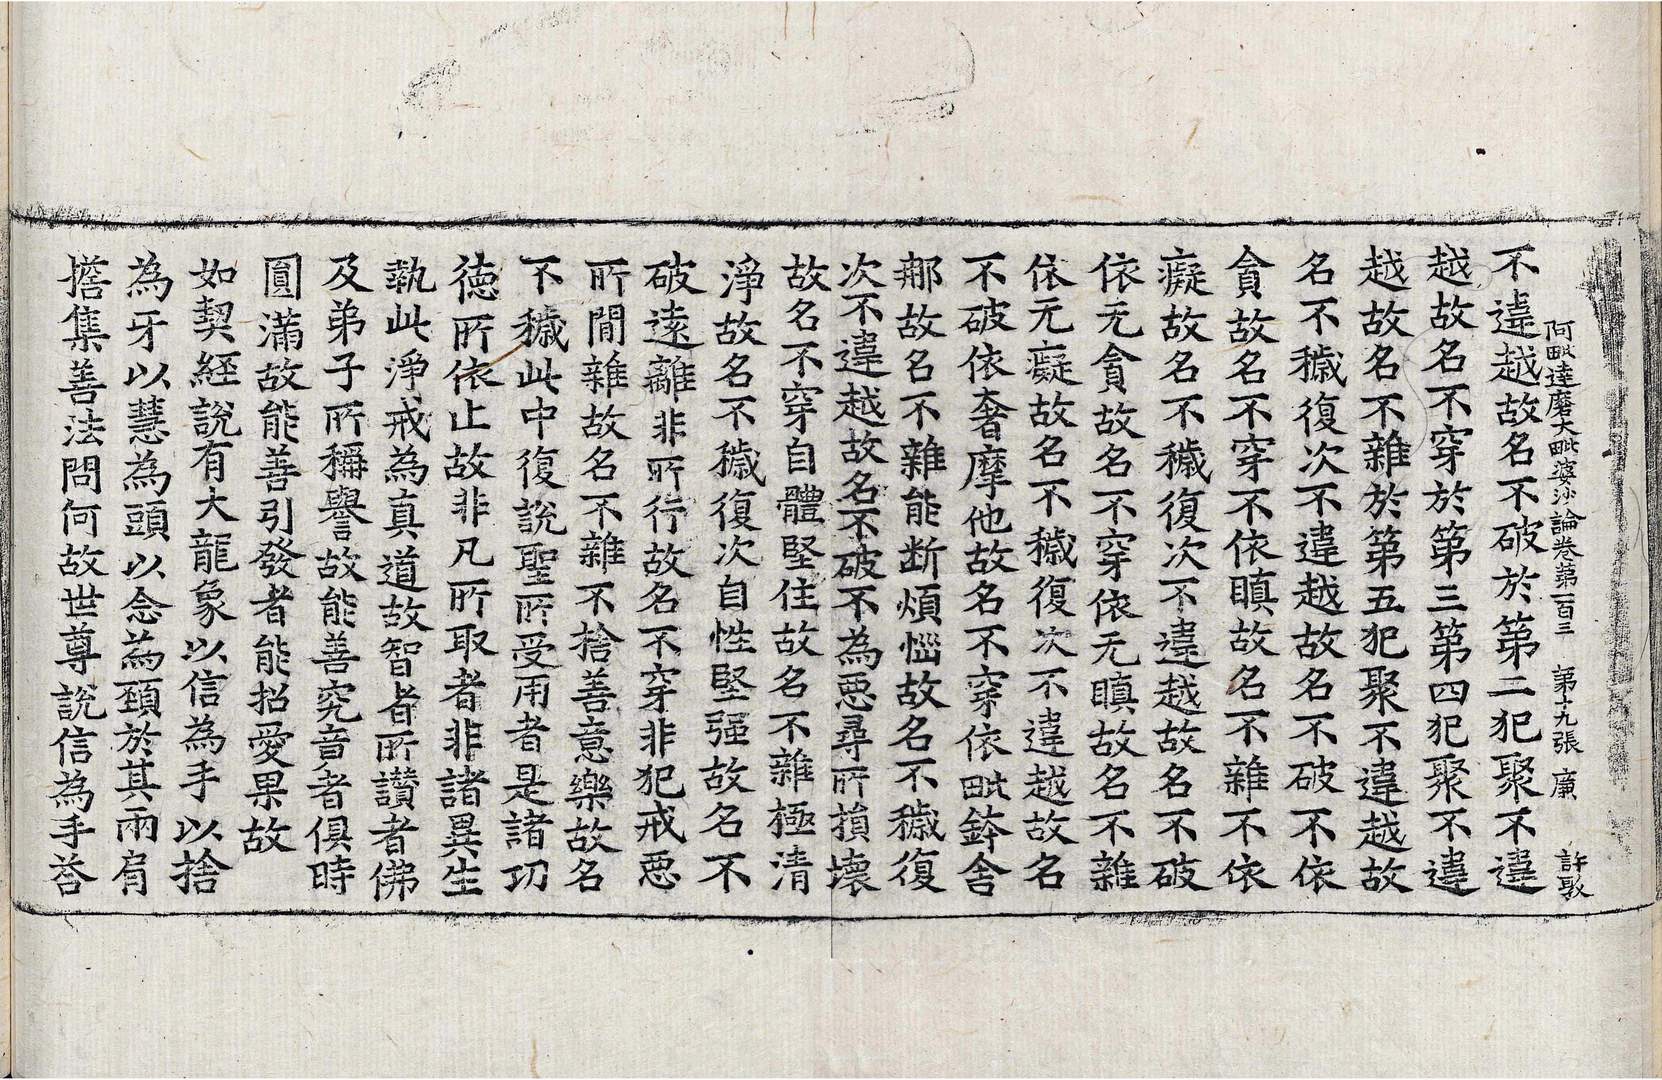 阿毗達磨大毗婆沙論卷第一百三 第十九張 廉 許敦
不違越故名不破於第二犯聚不違
越故名不穿於第三第四犯聚不違
越故名不雜於第五犯聚不違越故
名不穢復次不違越故名不破不依
貪故名不穿不依瞋故名不雜不依
癡故名不穢復次不違越故名不破
依无貪故名不穿依无瞋故名不雜
依无癡故名不穢復次不違越故名
不破依奢摩他故名不穿依毗鉢舍
那故名不雜能断煩惱故名不穢復
次不違越故名不破不為惡尋所損壞
故名不穿自體堅住故名不雜極清
淨故名不穢復次自性堅强故名不
破遠離非所行故名不穿非犯戒惡
所間雜故名不雜不捨善意樂故名
不穢此中復說聖所受用者是諸功
德所依止故非凡所取者非諸異生
執此淨戒為真道故智者所讃者佛
及弟子所稱譽故能善究竟者俱時
圓滿故能善引發者能招愛果故
如契經說有大龍象以信為手以捨
為牙以慧為頭以念為頸於其兩肩
擔集善法問何故世尊說信為手荅